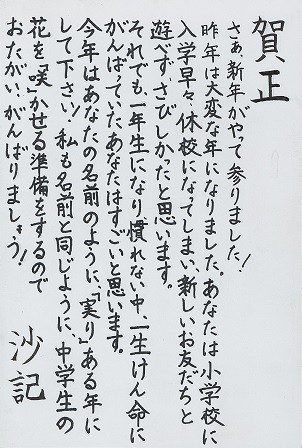 賀正
さあ、新年がやって参りました!
昨年は大変な年になりました。あなたは小学校に
入学早々、休校になってしまい、新しいお友だちと
遊べず、さびしかったと思います。
それでも、一年生になり慣れない中、一生けん命に
がんばっていたあなたはすごいと思います。
今年はあなたの名前のように、「実り」ある年に
して下さい!私も名前と同じように、中学生の
花を「咲」かせる準備をするので
おたがい、がんばりましょう!
沙記